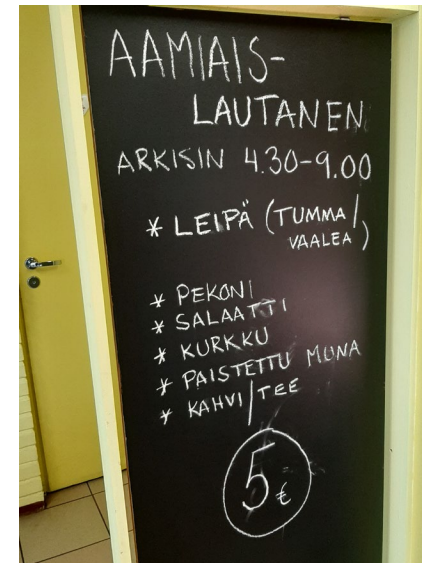 AAMIAIS-
LAUTANEN
ARKISIN 4.30-9.00
* LEIPÄ (TUMMA/
VAALEA)
* PEKONI
* SALAATTI
* KURKKU
* PAISTETTU MUNA
* KAHVI/TEE
5 €